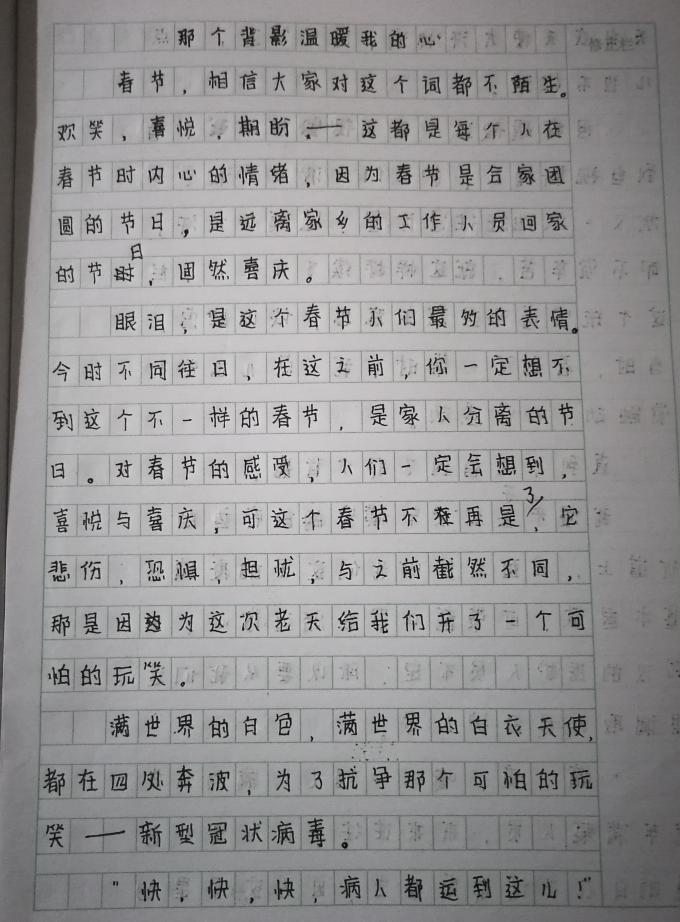 那个背影温暖我的心
春节，相信大家对这个词都不陌生。
欢笑，喜悦，期盼，——这都是每个人在
春节时内心的情绪，因为春节是合家团
圆的节日，是远离家乡的工作人员回家
的节日，固然喜庆。
眼泪，是这个春节人们最多的表情。
今时不同往日，在这之前，你一定想不
到这个不一样的春节，是家人分离的节
日。对春节的感受，人们一定会想到，
喜悦与喜庆，可这个春节不再是了，它
悲伤，恐惧，担忧，与之前截然不同，
那是因为这次老天给我们开了一个可
怕的玩笑。
满世界的白色，满世界的白衣天使，
都在四处奔波，为了抗争那个可怕的玩
笑——新型冠状病毒。
"快，快，快，病人都运到这儿！"